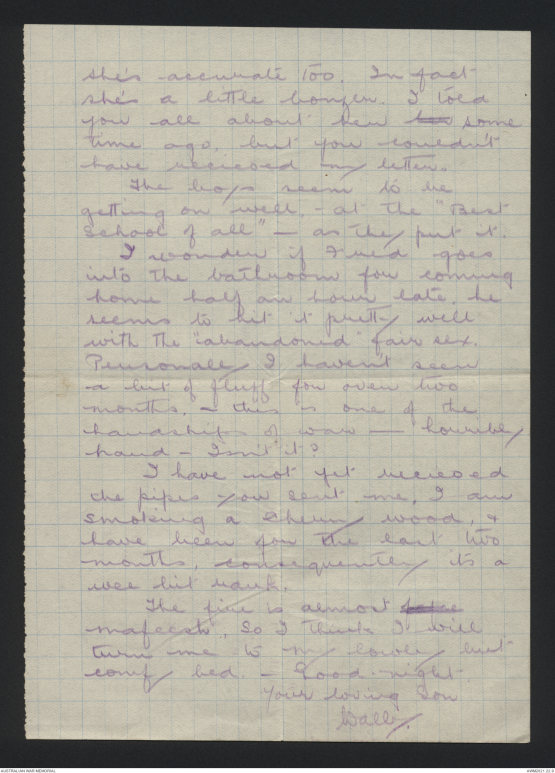 she's accurate too. In fact
she's a little bonzer. I told
you all about her some
time ago, but you couldn't
have recieved my letter.
The boys seem to be
getting on well, - at the "Best
School of all" - as they put it.
I wonder if Fred goes
into the bathroom for coming
home half an hour late, he
seems to hit it pretty well
with the "abandoned" fair sex.
Personally I haven't seen
a bit of fluff for over two
months, - this is one of the
hardships of war - horribly
hard - Isn't it?
I have not yet recieved
the pipes you sent me, I am
smoking a cherry wood, &
have been for the last two
months, consequently its a
wee bit rank.
The fire is almost
mafeesh, So I think I will
turn me to my lowly but
comfy bed. - Good-night
Your loving Son
AUSTRALIAN WAR MEMORIAL